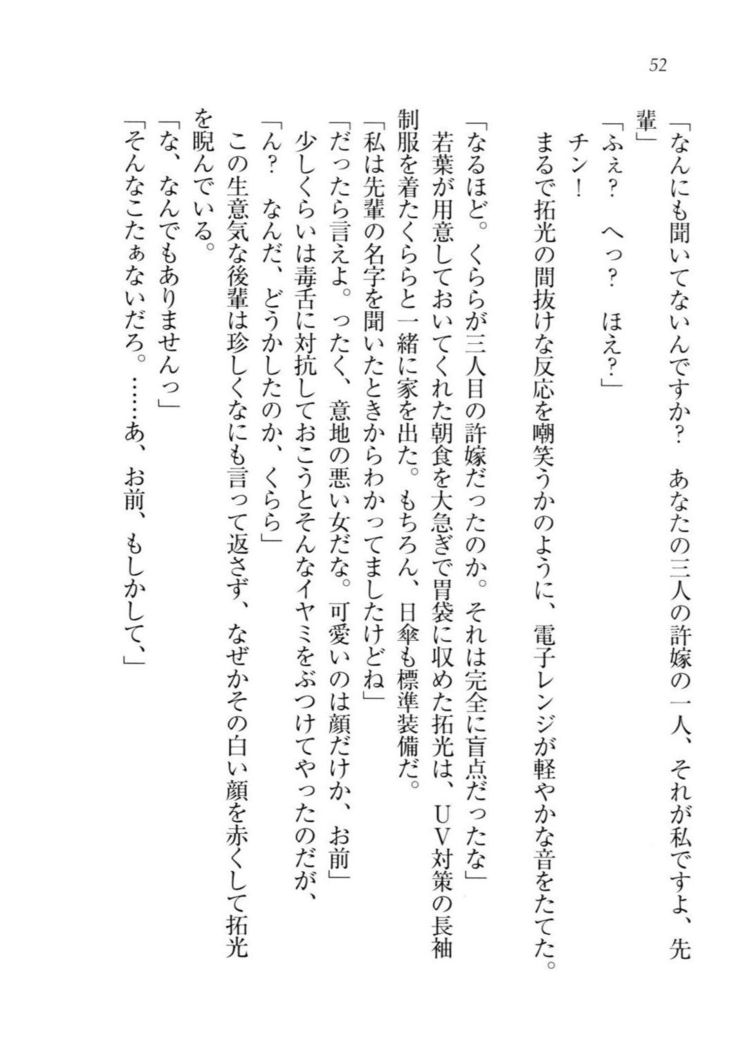 52
「なんにも聞いてないんですか？　あなたの三人の許嫁の一人、それが私ですよ、先
輩」
「ふぇ？　へっ？　ほえ？」
チン！
まるで拓光の間抜けな反応を嘲笑うかのように、電子レンジが軽やかな音をたてた。
「なるほど。くららが三人目の許嫁だったのか。それは完全に盲点だったな」
若葉が用意しておいてくれた朝食を大急ぎで胃袋に収めた拓光は、ＵＶ対策の長袖
制服を着たくららと一緒に家を出た。もちろん、日傘も標準装備だ。
「私は先輩の名字を聞いたときからわかってましたけどね」
「だったら言えよ。ったく、意地の悪い女だな。可愛いのは顔だけか、お前」
少しくらいは毒舌に対抗しておこうとそんなイヤミをぶつけてやったのだが、
「ん？　なんだ、どうかしたのか、くらら」
この生意気な後輩は珍しくなにも言って返さず、なぜかその白い顔を赤くして拓光
を睨んでいる。
「な、なんでもありませんっ」
「そんなこたぁないだろ。……あ、お前、もしかして、」